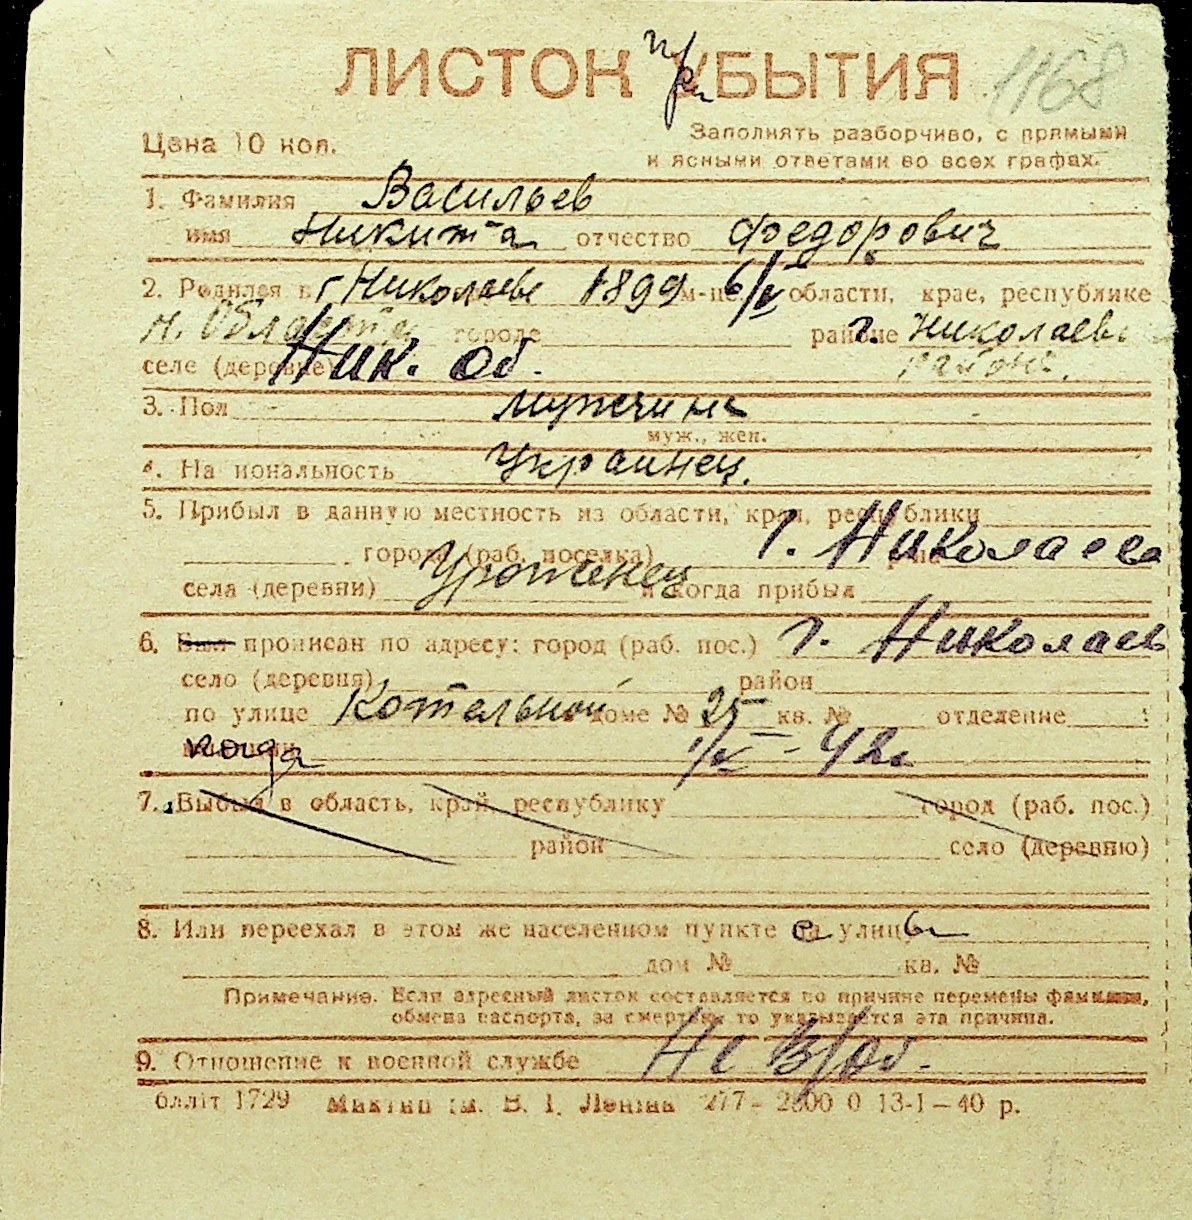 ЛИСТОК при УБЫТИЯ 1168
Цена 10 коп. Заполнять разборчиво, с прямыми
и ясными ответами во всех графах.
1. Фамилия Васильев
имя Никита отчество Федорович
2. Родился в г Николаеве 1899 м-це 6/V области, крае, республике
Н. Области городе районе г. Николаев
селе (деревне) Ник. об. района
3. Пол мужчина
муж., жен.
4. На иональность Украинец.
5. Прибыл в данную местность из области, края, республики
города (раб. поселка) г. Николаева
села (деревни) Уроженец и когда прибыл
6. Был прописан по адресу: город (раб. пос.) г. Николаев
село (деревня) район
по улице Котельной доме № 25 кв. № отделение
когда
7. Выбыл в область, край, республику город (раб. пос.)
район село (деревню)
8. Или переехал в этом же населенном пункте с улицы
дом № кв. №
Примечание. Если адресный листок составляется по причине перемены фамилии,
обмена паспорта, за смертью, то указывается эта причина.
9. Отношение к военной службе Не в/об.
1729 В. І. Леніна 277 - 2800 0 13-1-40 р.